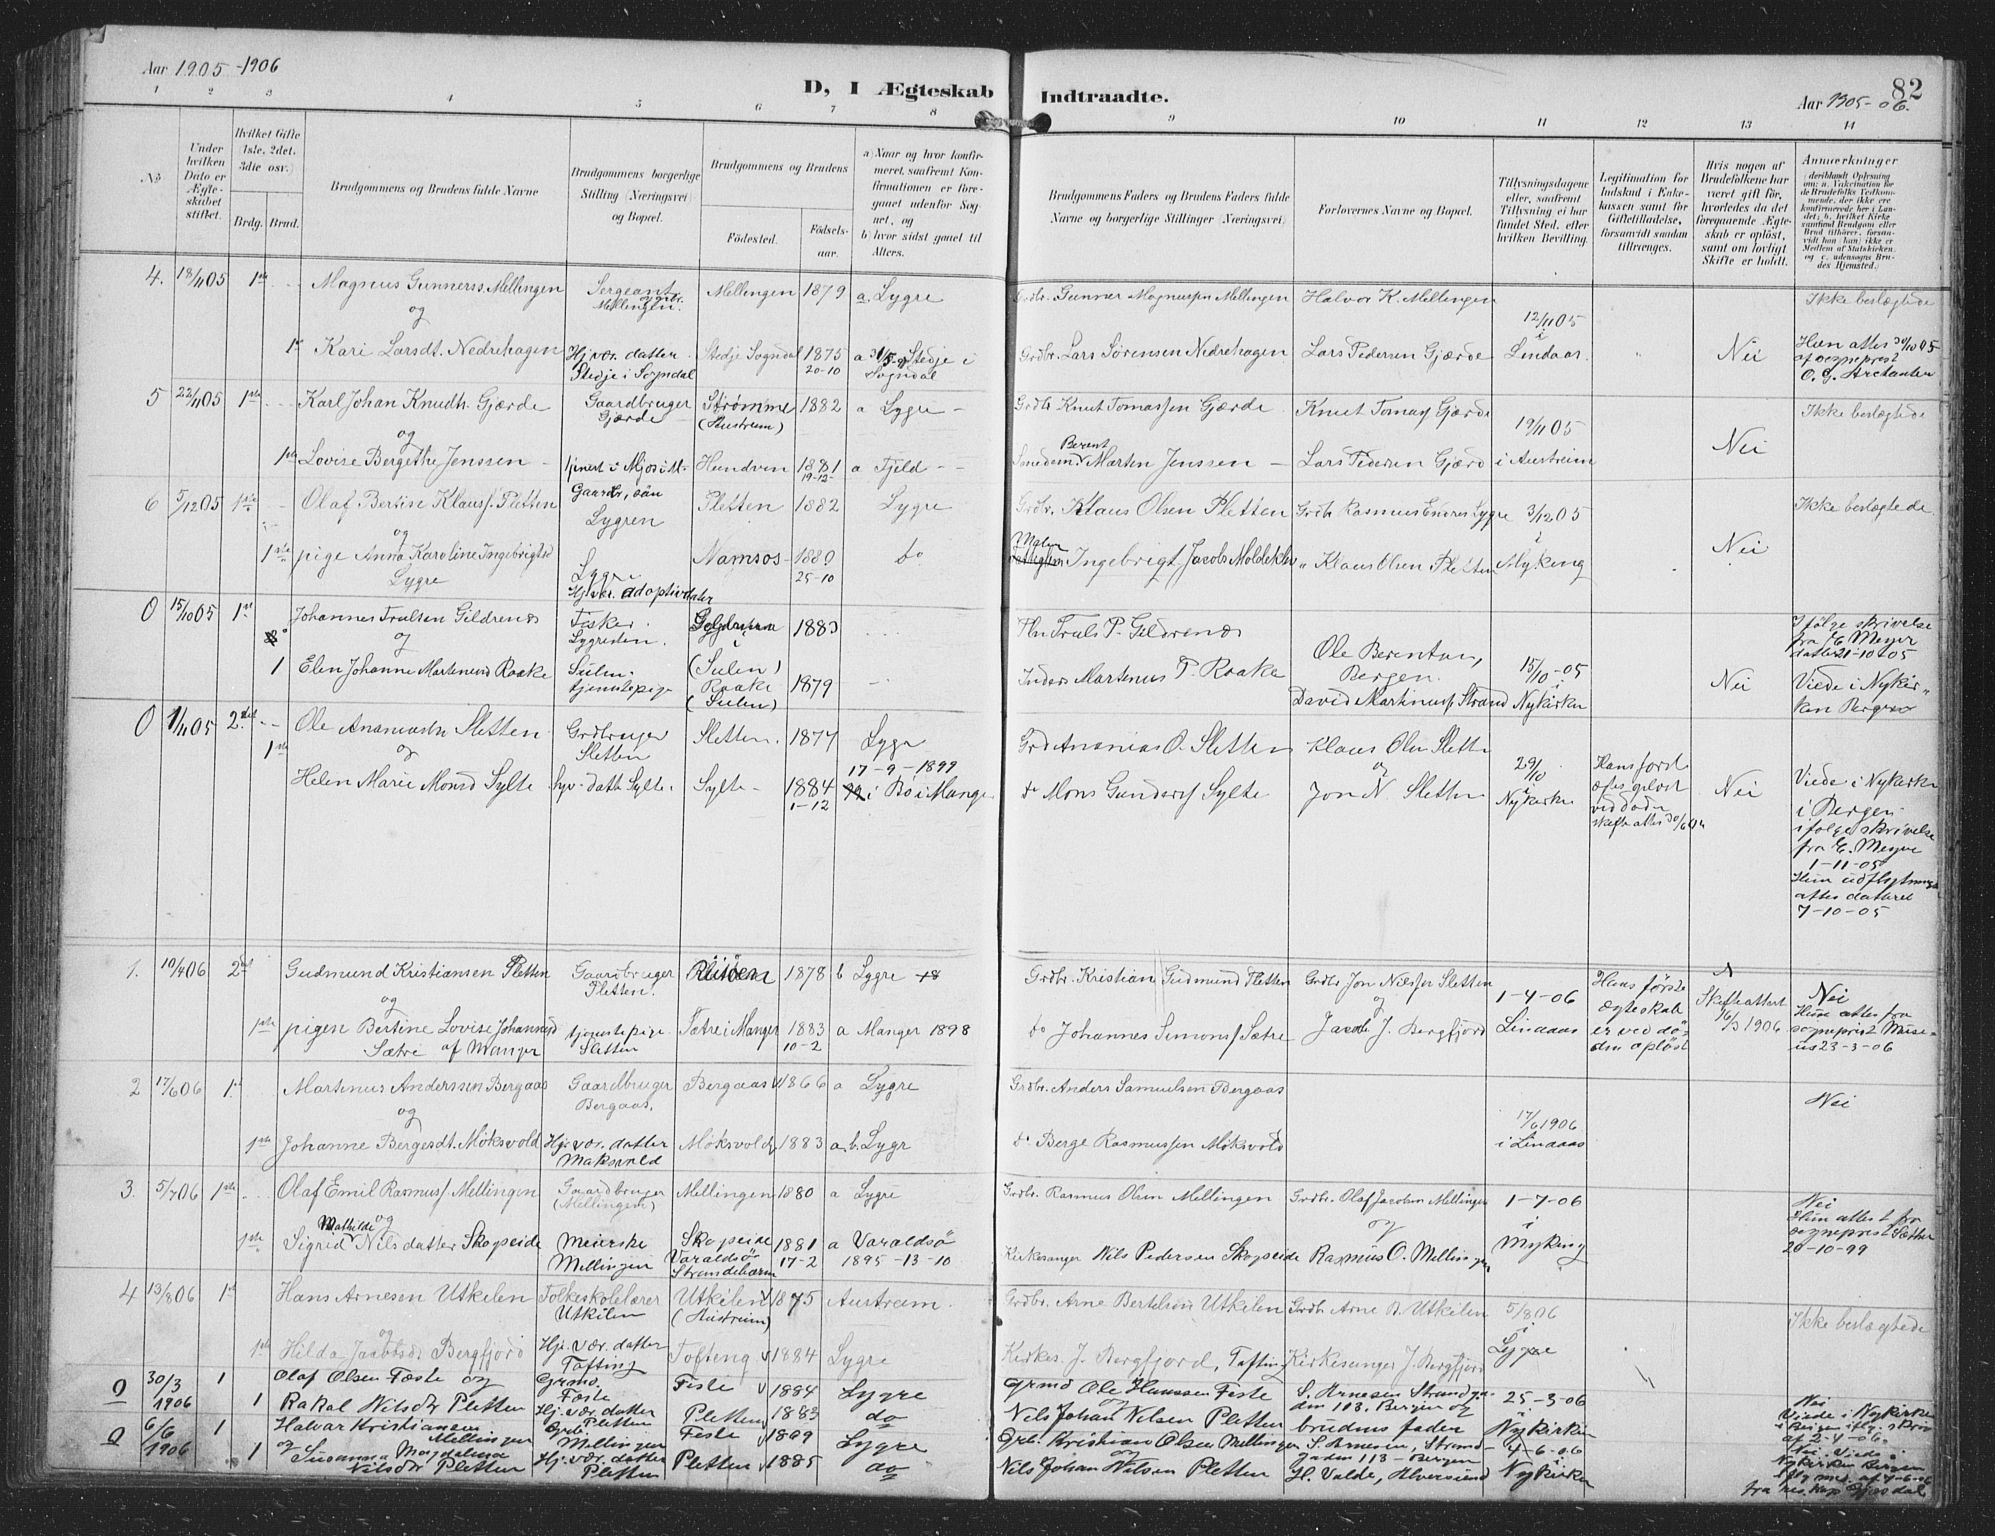 Aar 1905-1906
D, I Ægteskab Indtraadte.
82
Aar 1905-06.
1 2 3 4 5 6 7 8 9 10 11 12 13 14
No
Under hvilken Dato er Ægteskabet stiftet.
Hvilket Gifte 1ste, 2det, 3die osv.)
Brdg. Brud.
Brudgommens og Brudens fulde Navne
Brudgommens borgerlige Stilling (Næringsvei) og Bopæl.
Brudgommens og Brudens
Fødested.
Fødselsaar.
a) Naar og hvor konfirmeret, saafremt Konfirmationen er foregaaet udenfor Sognet, og
b) hvor sidst gaaet til Alters.
Brudgommens Faders og Brudens Faders fulde Navne og borgerlige Stillinger (Næringsvei)
Forlovernes Navne og Bopæl.
Tillysningsdagene eller, saafremt Tillysning ei har fundet Sted, efter hvilken Bevilling.
Legitimation for Indskud i Enkekassen samt for Giftetilladelse, forsaavidt saadan tiltrænges.
Hvis nogen af Brudefolkene har været gift før, hvorledes da det foregaaende Ægteskab er opløst, samt om lovligt Skifte er holdt.
Anmerkninger (deriblandt Oplysning om: a. Vakcination for de Brudefolks Vedkommende, der ikke ere konfirmerede her i Landet; b. hvilket Kirkesamfund Brudgom eller Brud tilhører, forsaavidt han (hun) ikke er Medlem af Statskirken, og c. udensogns Brudes Hjemsted.)
4. 18/11 05 1ste Magnus Gunnerss. Mellingen Sergeant Mellingen. Mellingen 1879 a Lygre Grdbr. Gunner Magnussen Mellingen Halvor K. Mellingen 12/11 05 Ikke beslægtede
og
1ste Kari Larsdt. Nedrehagen Hj. vær. datter Stedje i Sogndal Stedje Sogndal 1875 20-10 a Stedje i Sogndal Grdbr. Lars Sørensen Nedrehagen Lars Pedersen Gjærde i Lindaas. Nei Hun attest 30/10 05 af sogneprest
5 22/11 05 1ste Karl Johan Knudtz. Gjærde Gaardbruger Gjærde Strømme (Austreim) 1882 a Lygre Grdbr. Knut Tomassen Gjærde Knut Tomas. Gjærde 19/11 05 Ikke beslægtede
og
1ste Lovise Bergethe Jenssen Hundven 1881 19-12 a Fjeld Berent Marten Jenssen Lars Pedersen Gjærd i Austreim Nei
6 5/12 05 1ste Olaf Bertine Klauss. Pletten Gaardbr. søn Lygren Pletten 1882 Lygre Grdbr. Klaus Olsen Pletten Grdbr Rasmus Endres. Lygre 3/12 05 Ikke beslægtede
og
1ste pige Anna Karoline Ingebrigtsd Lygre Lygre Hj. vær. adoptivdater Namsos 1880 25-10 do Maler Ingebrigt Jacobs. Moldeklev Klaus Olsen Pletten i Myking Nei
0 15/10 05 1ste Johannes Trulsen Gildrenes Fisker Lygreden. i (Sulen) 1883 Truls P. Gildrenes Ole Berentsen, Bergen. 15/10-05 Ifølge skrivelse fra E. Meyer dateret 21-10-05
og
1 Elen Johanne Martensend Raake Sulen tjenestepige Raake (Sulen) 1879 Inders Martenus P. Raake David Martinus. Strand i Nykirken Nei Viede i Nykirken Bergen
0 1/11 05 2det Ole Ananiassen Sletten Grdbruger Sletten Sletten. 1874 Lygre Grd Ananias O. Sletten Klaus Olsen Sletten 29/10
og
1ste Helen Marie Monsd Sylte hjv. datt. Sylte. Sylte 1884 1-12 17-9-1899 i Bø i Mange do Mons Gunders. Sylte Jon N. Sletten i Nykirke Hans ford. ved døden skifte attest 30/6 04 Nei Viede i Nykirke i Bergen ifølge skrivelse fra E. Meyer 1-11-05 Hun udflytnings attes dateret 7-10-05
1. 10/4 06 2det Gudmund Kristiansen Pletten Gaardbruger Pletten. 1878 b Lygre Grdbr. Kristian Gudmund. Pletten Grdbr Jon Nilssen Sletten 1-4-06 Hans første ægteskab er ved døden opløst Skifteattest 16/3 1906 Nei
og
1ste pigen Bertine Lovise Johannesd Sætre af Manger tjenestepige Sletten Sætre i Manger 1883 10-2 a Manger 1898 do Johannes Simons. Sætre Jacob J. Bergfjord Lindaas Hun attes fra sogneprest Museus 23-3-06
2 17/6 06 1. Martinus Anderssen Bergaas Gaardbruger Bergaas. Bergaas 1866 a Lygre Grdbr. Anders Samuelsen Bergaas Nei
og
1ste Johanne Bergesdt. Møksvold Hj. vær. datter Møksvold 1883 a.b. Lygr do Berge Rasmussen Møksvold 17/6 1906 i Lindaas
3. 5/7 06 1ste Olaf Emil Rasmus. Mellingen Gaardbruger (Mellingen) Mellingen 1880 a Lygre Grdbr. Rasmus Olsen Mellingen Grdbr. Olaf Jacobsen Mellingen 1-7-06 Nei
Mathilde og
1ste Sigrid Nilsdatter Skopseide Meierske Mellingen Skopseide Varaldsø Strandebarm 1881 17-2 a Varaldsø 1895-13-10 Kirkesanger Nils Pedersen Skopseide Rasmus O. Mellingen i Myking Hun attest fra sogneprest Sætter 20-10-99
4 13/8 06 1ste Hans Arnesen Utkilen Folkeskolelærer Utkilen Utkilen (Austreim) 1875 Austream. Grdbr. Arne Bertelsen Utkilen Grdbr Arne B. Utkilen 5/8 06 Ikke beslægtede
og
1ste Hilda Jacobsdr Bergfjord Hj. vær. datter Tofting Tofteng 1884 Lygre Kirkes. J. Bergfjord, Tafting Kirkesanger J. Bergfjord i Lygre
0 30/3 1906 1 Olaf Olsen Feste og Grmd. Feste Feste 1884 Lygre Grmd Ole Hanssen Feste S. Arnesen Strandgaden 113, Bergen og 25-3-06 Nei
1 Rakel Nilsdr Pletten Hj. vær. datter Pletten Pletten 1883 do Nils Johan Nilsen Pletten brudens fader i Nykirken Viede i Nykirken i Bergen ifølg. skriv af 2-4-06.
0 6/6 1906 1 Halvar Kristiansen Mellingen Grbr. Mellingen Feste 1889 Lygre Grbr. Kristian Olsen Mellingen S. Arnesen, Strandgaden 113 - Bergen 4-6-06 Nei. Viede i Nykirken Bergen
1 og Susanna Magdalena Nilsdr Pletten Hj. vær. datter Pletten Pletten 1885 do Nils Johan Nilsen Pletten H. Valde, Alversund i Nykirken af 7-6-06 fra res. kap. Gjøsdal